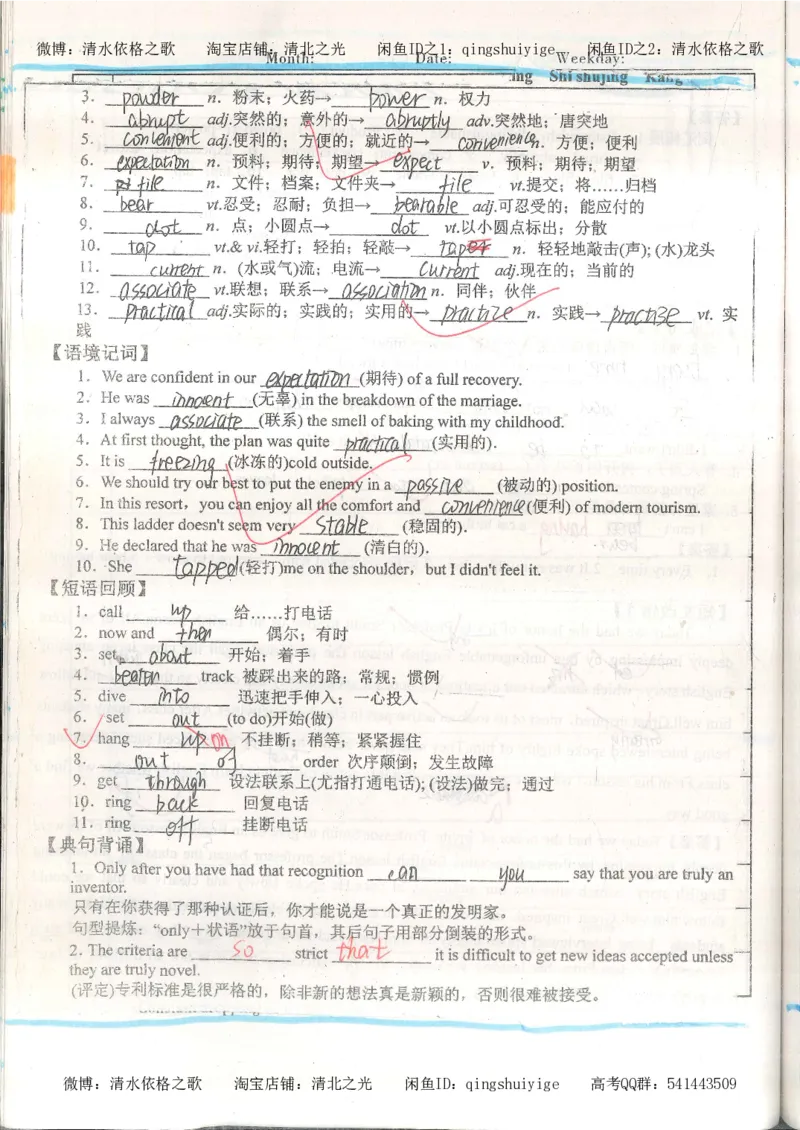 微博：清水依格之歌 淘宝店铺：清北之光 闲鱼ID之1：qingshuiyige 闲鱼ID之2：清水依格之歌
Month: Date: Weekday:
Shi shujing Kang
3. powder n. 粉末；火药→ power n. 权力
4. abrupt adj.突然的；意外的→ abruptly adv.突然地；唐突地
5. convenient adj.便利的；方便的；就近的→ convenience n. 方便；便利
6. expectation n. 预料；期待；期望→ expect v. 预料；期待；期望
7. file n. 文件；档案；文件夹→ file vt.提交；将……归档
8. bear vt.忍受；忍耐；负担→ bearable adj.可忍受的；能应付的
9. dot n. 点；小圆点→ dot vt.以小圆点标出；分散
10. tap vt.& vi.轻打；轻拍；轻敲→ tap n. 轻轻地敲击(声)；(水)龙头
11. current n. (水或气)流；电流→ current adj.现在的；当前的
12. associate vt.联想；联系→ association n. 同伴；伙伴
13. practical adj.实际的；实践的；实用的→ practice n. 实践→ practise vt. 实
践
【语境记词】
1. We are confident in our expectation (期待) of a full recovery.
2. He was innocent (无辜) in the breakdown of the marriage.
3. I always associate (联系) the smell of baking with my childhood.
4. At first thought, the plan was quite practical (实用的).
5. It is freezing (冰冻的)cold outside.
6. We should try our best to put the enemy in a passive (被动的) position.
7. In this resort，you can enjoy all the comfort and convenience (便利) of modern tourism.
8. This ladder doesn't seem very stable (稳固的).
9. He declared that he was innocent (清白的).
10. She tapped (轻打)me on the shoulder，but I didn't feel it.
【短语回顾】
1. call up 给……打电话
2. now and then 偶尔；有时
3. set about 开始；着手
4. beaten track 被踩出来的路；常规；惯例
5. dive into 迅速把手伸入；一心投入
6. set out (to do)开始(做)
7. hang up on 不挂断；稍等；紧紧握住
8. out of order 次序颠倒；发生故障
9. get through 设法联系上(尤指打通电话)；(设法)做完；通过
10. ring back 回复电话
11. ring off 挂断电话
【典句背诵】
1. Only after you have had that recognition can you say that you are truly an
inventor.
只有在你获得了那种认证后，你才能说是一个真正的发明家。
句型提炼：“only＋状语”放于句首，其后句子用部分倒装的形式。
2. The criteria are so strict that it is difficult to get new ideas accepted unless
they are truly novel.
(评定)专利标准是很严格的，除非新的想法真是新颖的，否则很难被接受。
微博：清水依格之歌 淘宝店铺：清北之光 闲鱼ID：qingshuiyige 高考QQ群：541443509